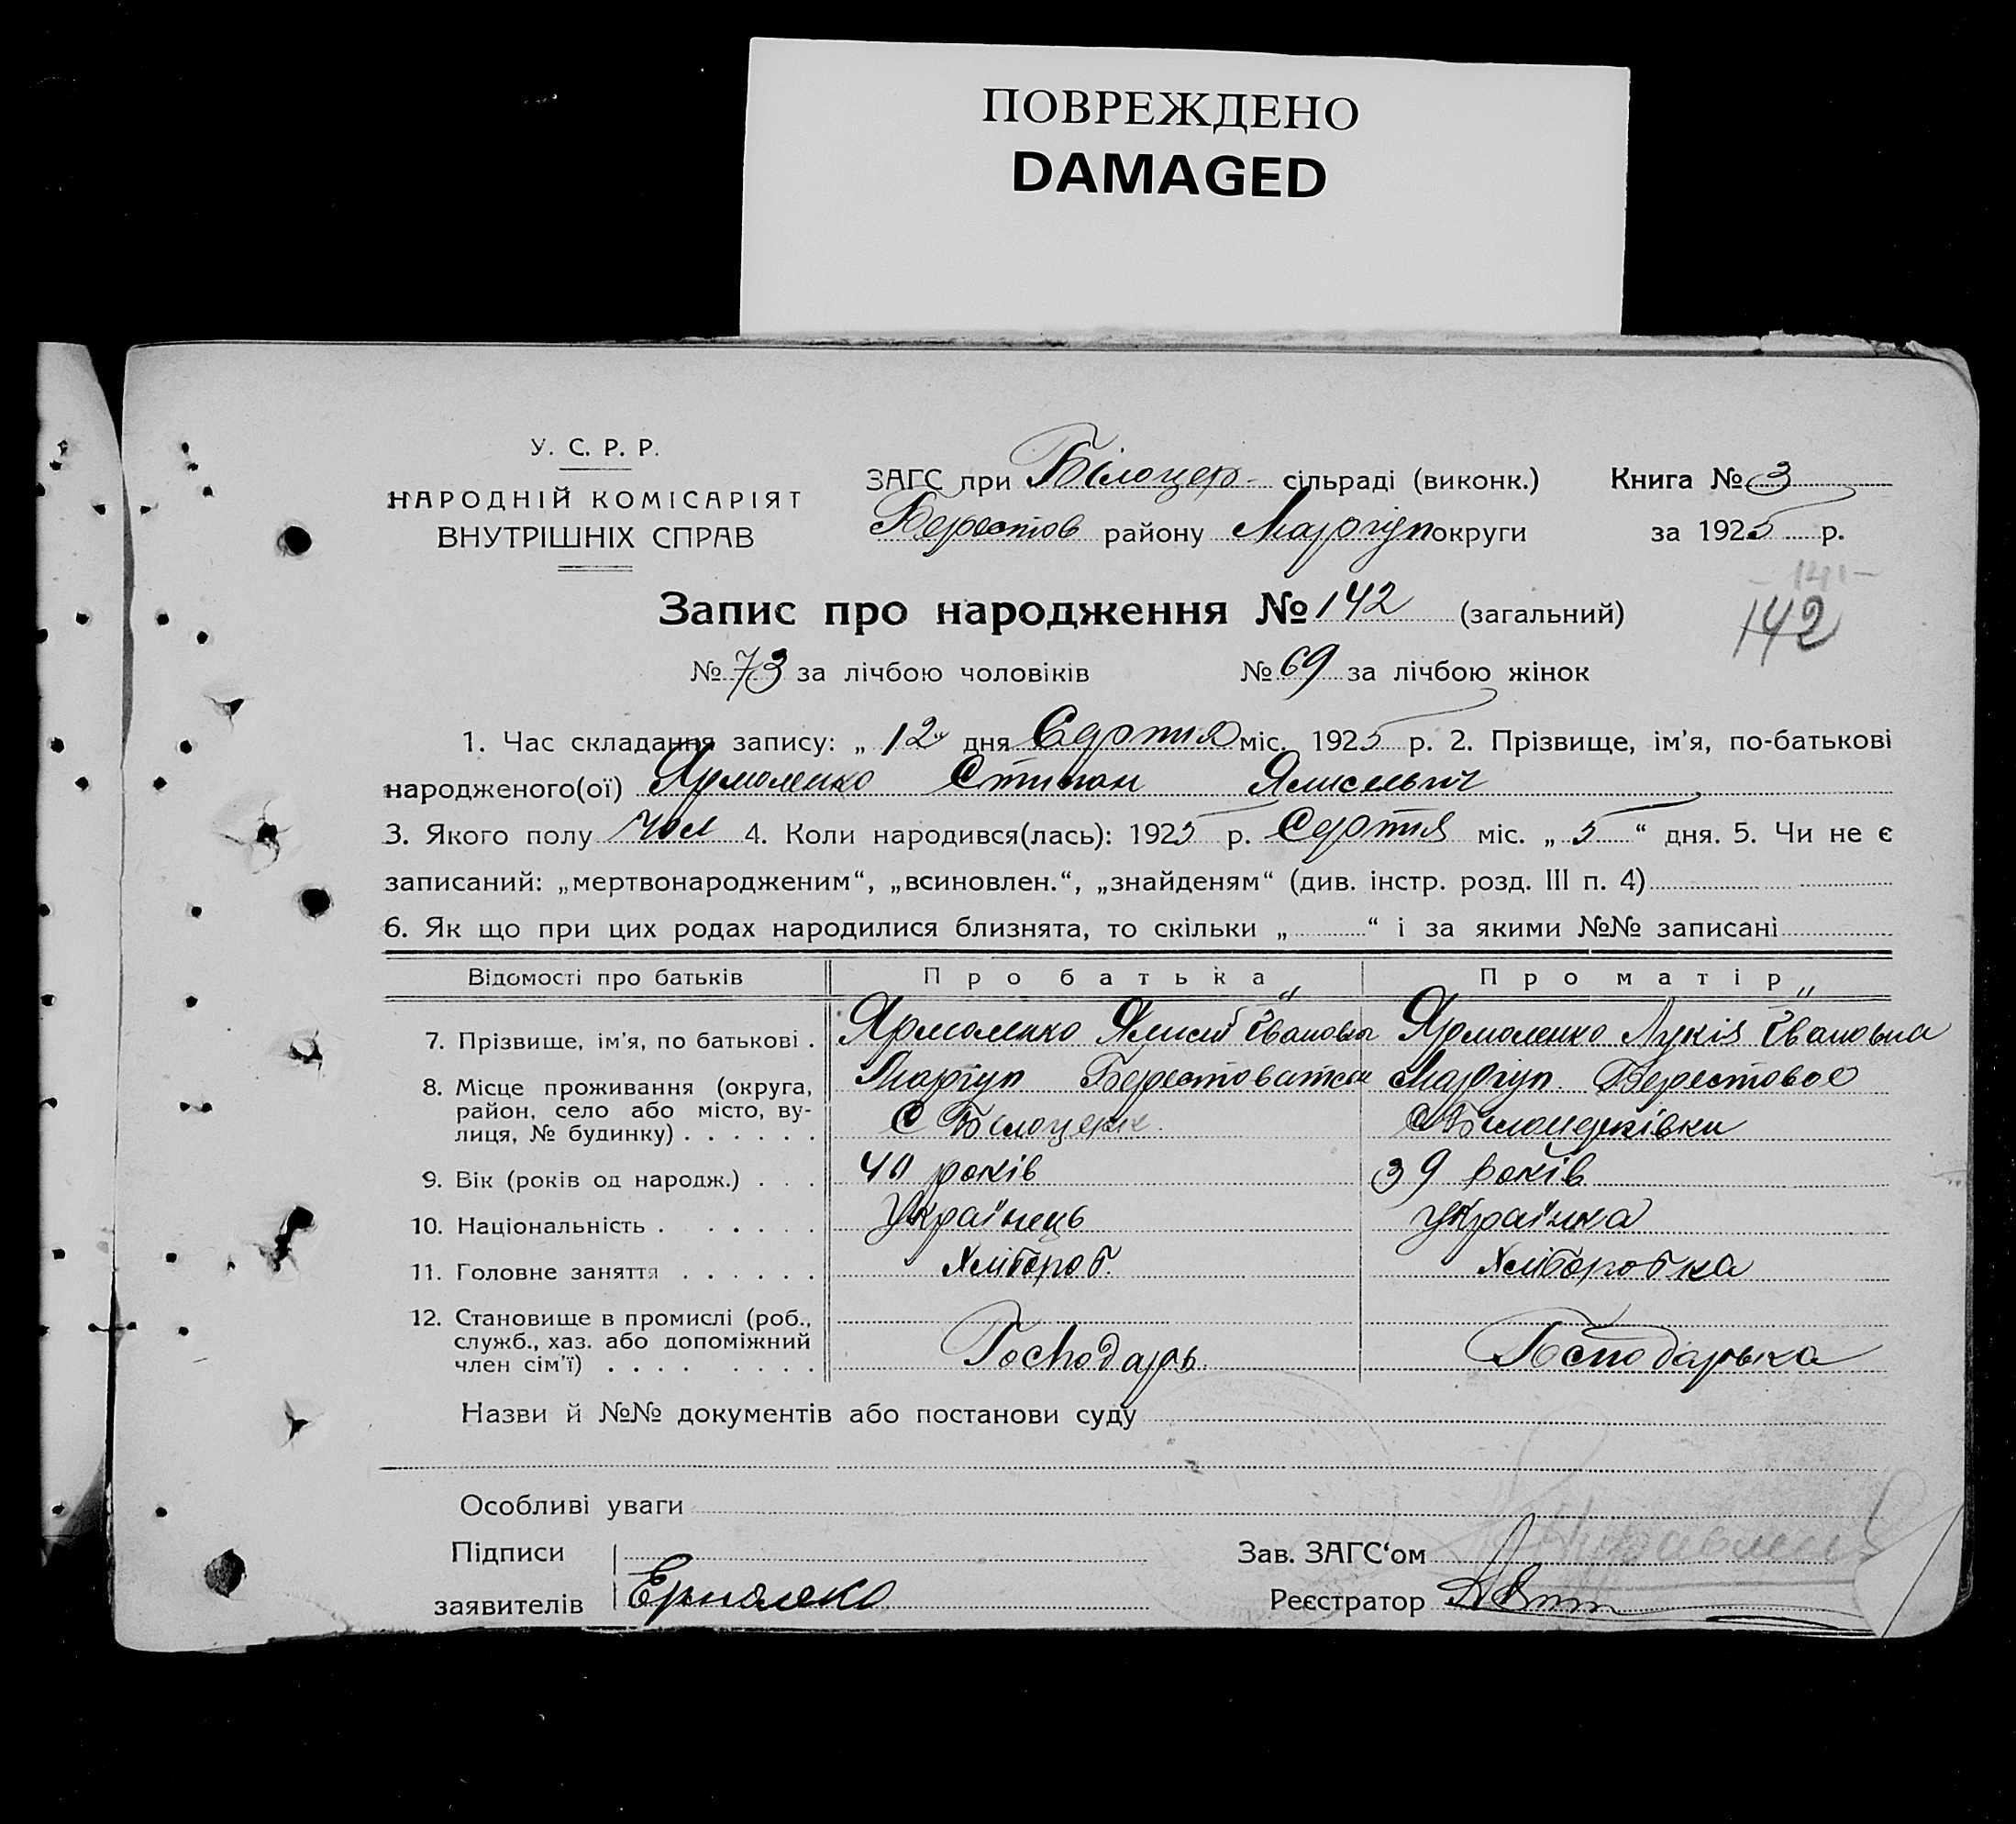 ПОВРЕЖДЕНО
DAMAGED
У. С. Р. Р.
НАРОДНІЙ КОМІСАРІЯТ
ВНУТРІШНІХ СПРАВ
ЗАГС при Білоцер- сільраді (виконк.) Книга № 3
Берестов району Маріуп округи за 1925 р.
-141-
142
Запис про народження № 142 (загальний)
№ 73 за лічбою чоловіків № 69 за лічбою жінок
1. Час складання запису: „ 12 " дня Серпня міс. 1925 р. 2. Прізвище, ім'я, по-батькові
народженого(ої) Ярмоленко Стипан
3. Якого полу чол 4. Коли народився(лась): 1925 р. Серпня міс. „ 5 “ дня. 5. Чи не є
записаний: „мертвонародженим“, „всиновлен.“, „знайденям“ (див. інстр. розд. III п. 4)
6. Як що при цих родах народилися близнята, то скільки „ “ і за якими №№ записані
Відомості про батьків Про батька Про матір
7. Прізвище, ім'я, по батькові . Ярмоленко Ярмоленко Лукія Івановна
8. Місце проживання (округа, Маріуп Маріуп Берестовое
район, село або місто, ву-
лиця, № будинку) . . . . . . С Білоцерк с Білоцерківки
9. Вік (років од народж.) . . . 40 років 39 років
10. Національність . . . . . . Українець Українка
11. Головне заняття . . . . . . Хлібороб. Хліборобка
12. Становище в промислі (роб.,
служб., хаз. або допоміжний
член сім'ї) . . . . . . . . Господарь. Господарька
Назви й №№ документів або постанови суду
Особливі уваги
Підписи Зав. ЗАГС‘ом
заявителів Реєстратор